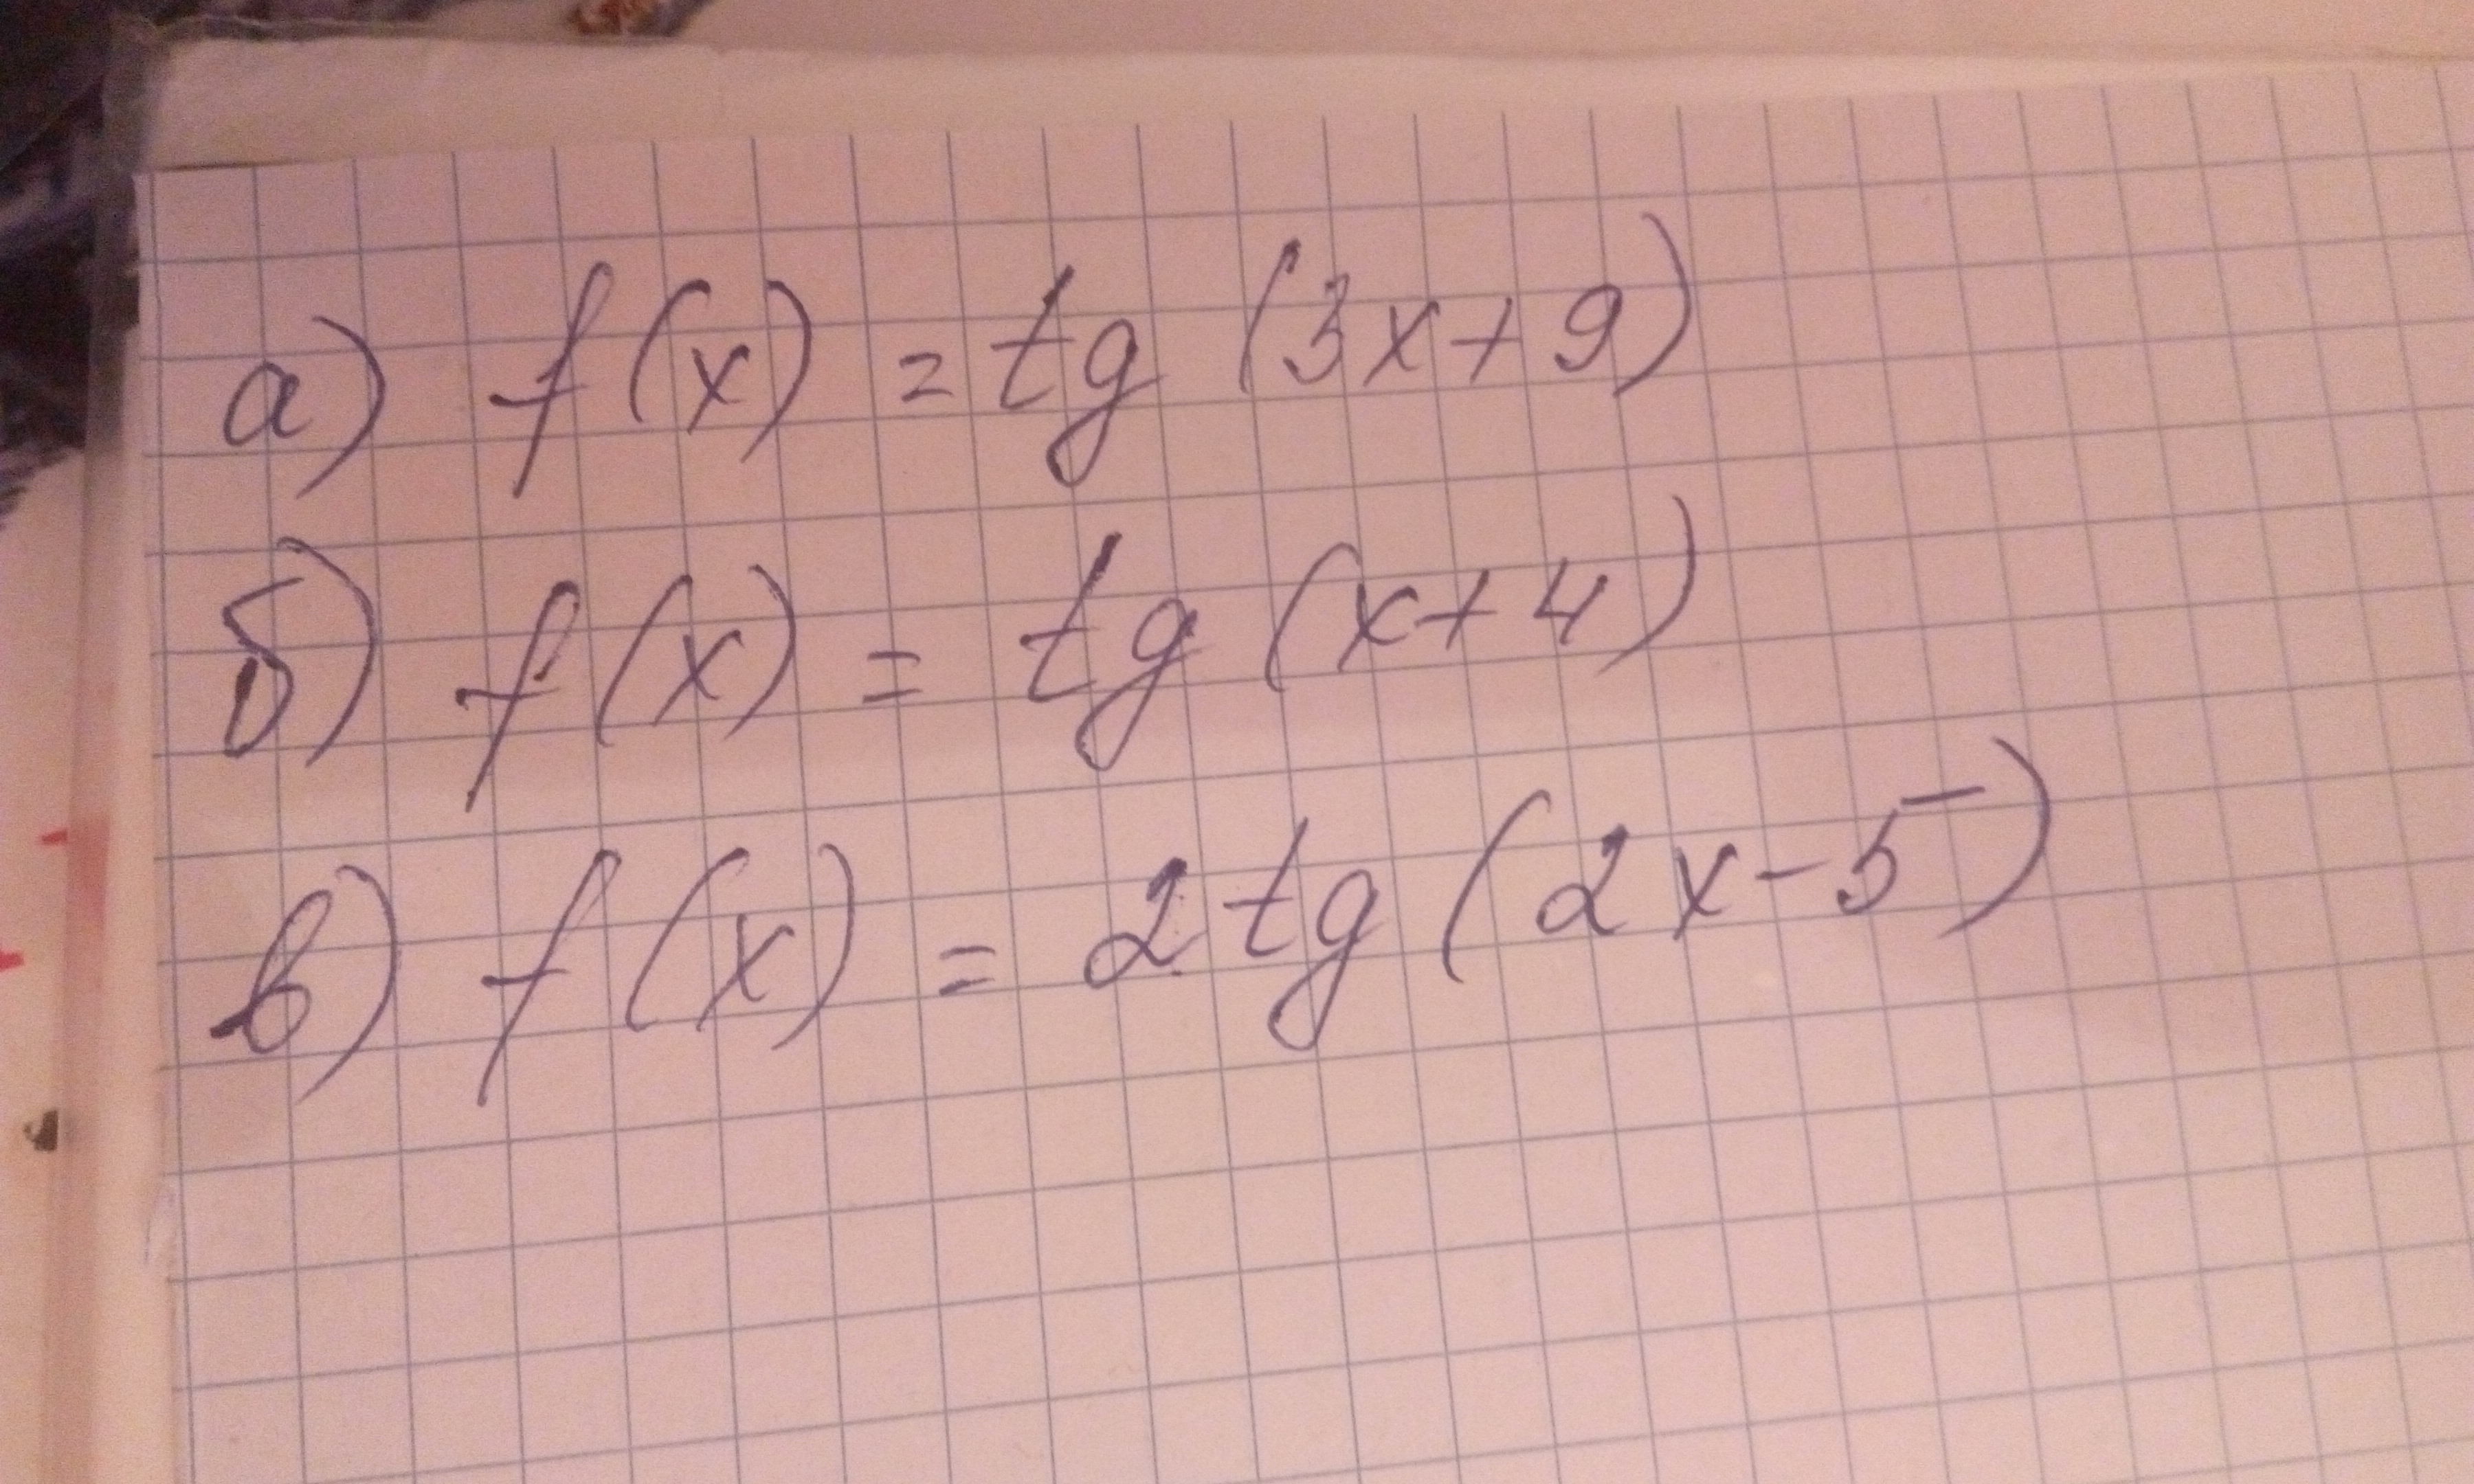 а) f(x) = tg (3x+9)
б) f(x) = tg (x+4)
в) f(x) = 2tg (2x-5)